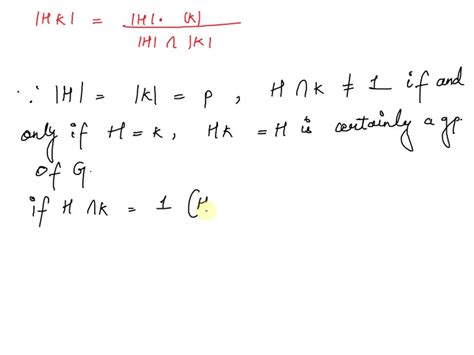 |HK| = |H|· |K|
|H| ∩ |K|
∵ |H| = |K| = p , H ∩ K ≠ 1 if and
only if H = K , HK = H is certainly a gp
of G.
if H ∩ K = 1 (H